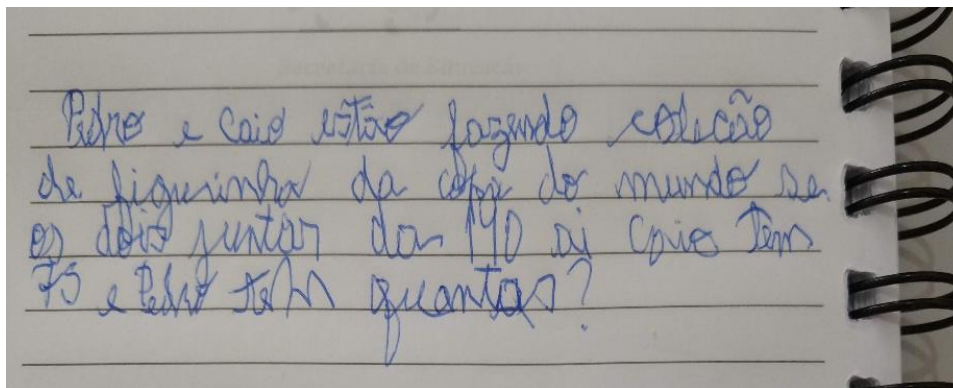 Pedro e Caio estão fazendo coleção
de figurinha da copa do mundo se
os dois juntar da 190 ai Caio tem
75 e Pedro tem quantas?